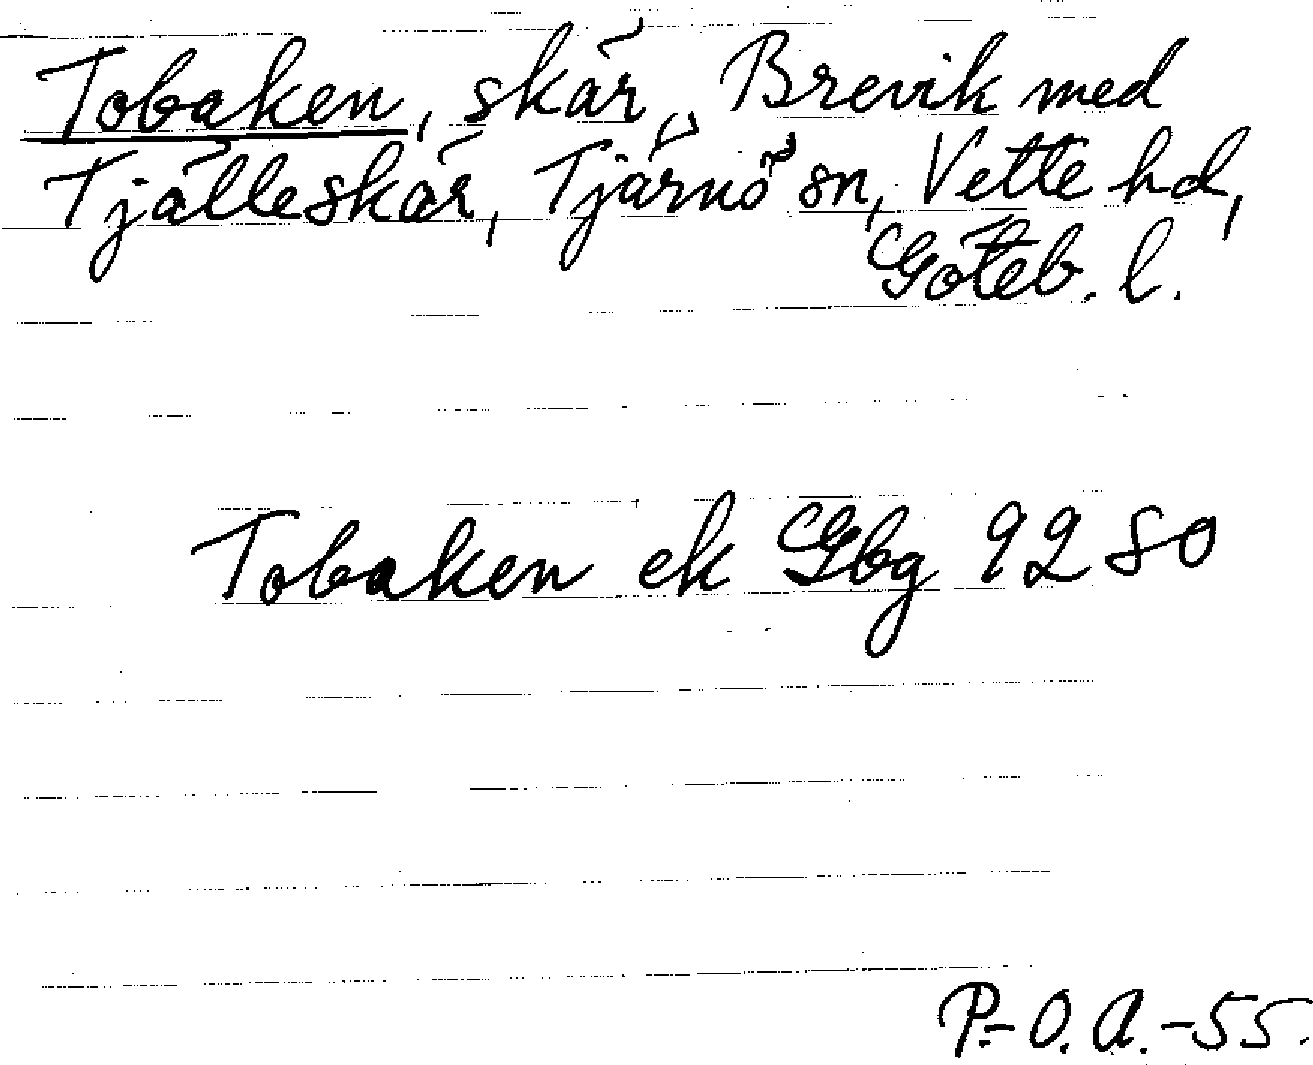 Tobaken, skär, Brevik med
Tjälleskär, Tjärnö sn, Vette hd,
Göteb. l.
Tobaken ek Gbg 9280
P.-O. A.-55.